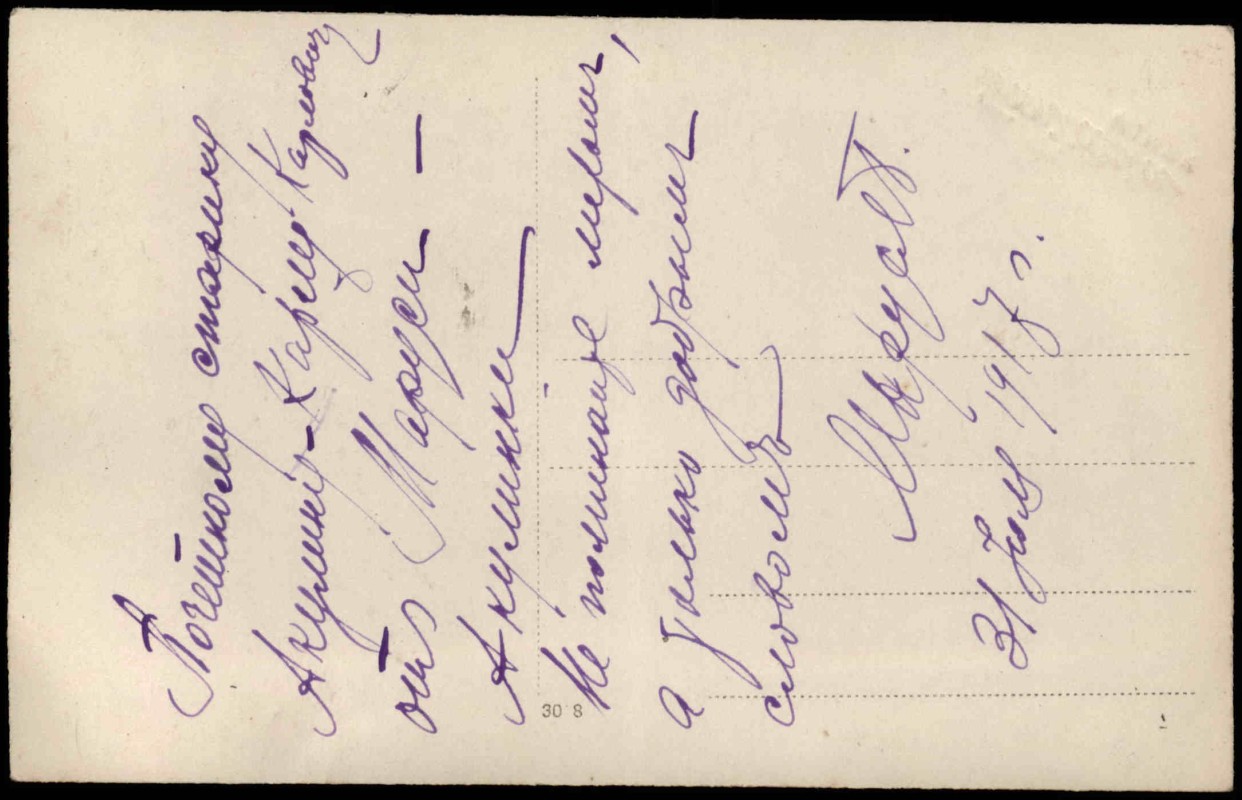 Почетному старику
Акулину-Карлу Карловичу
отъ Маруси —
Акулинки
Не поминайте лихом,
а только добрым
словомъ
Маруся
31 Июля 1917 г.
30 8